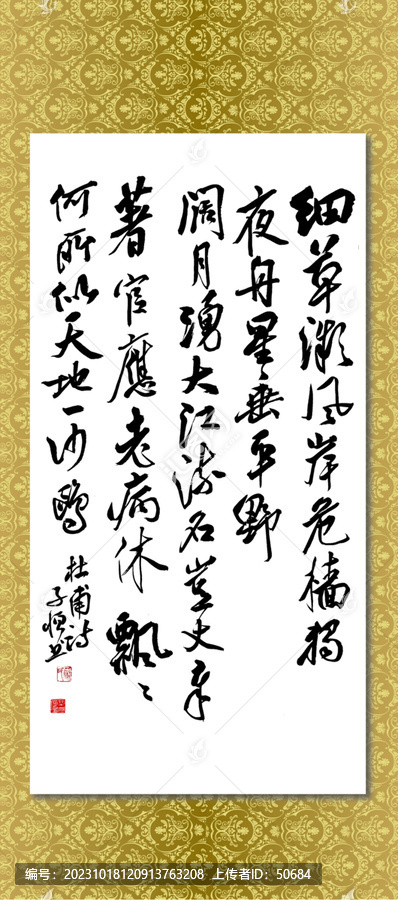 細草微風岸危檣獨
夜舟星垂平野
闊月湧大江流名豈文章
著官應老病休飄〻
何所似天地一沙鷗
杜甫詩
编号：20231018120913763208 上传者ID：50684